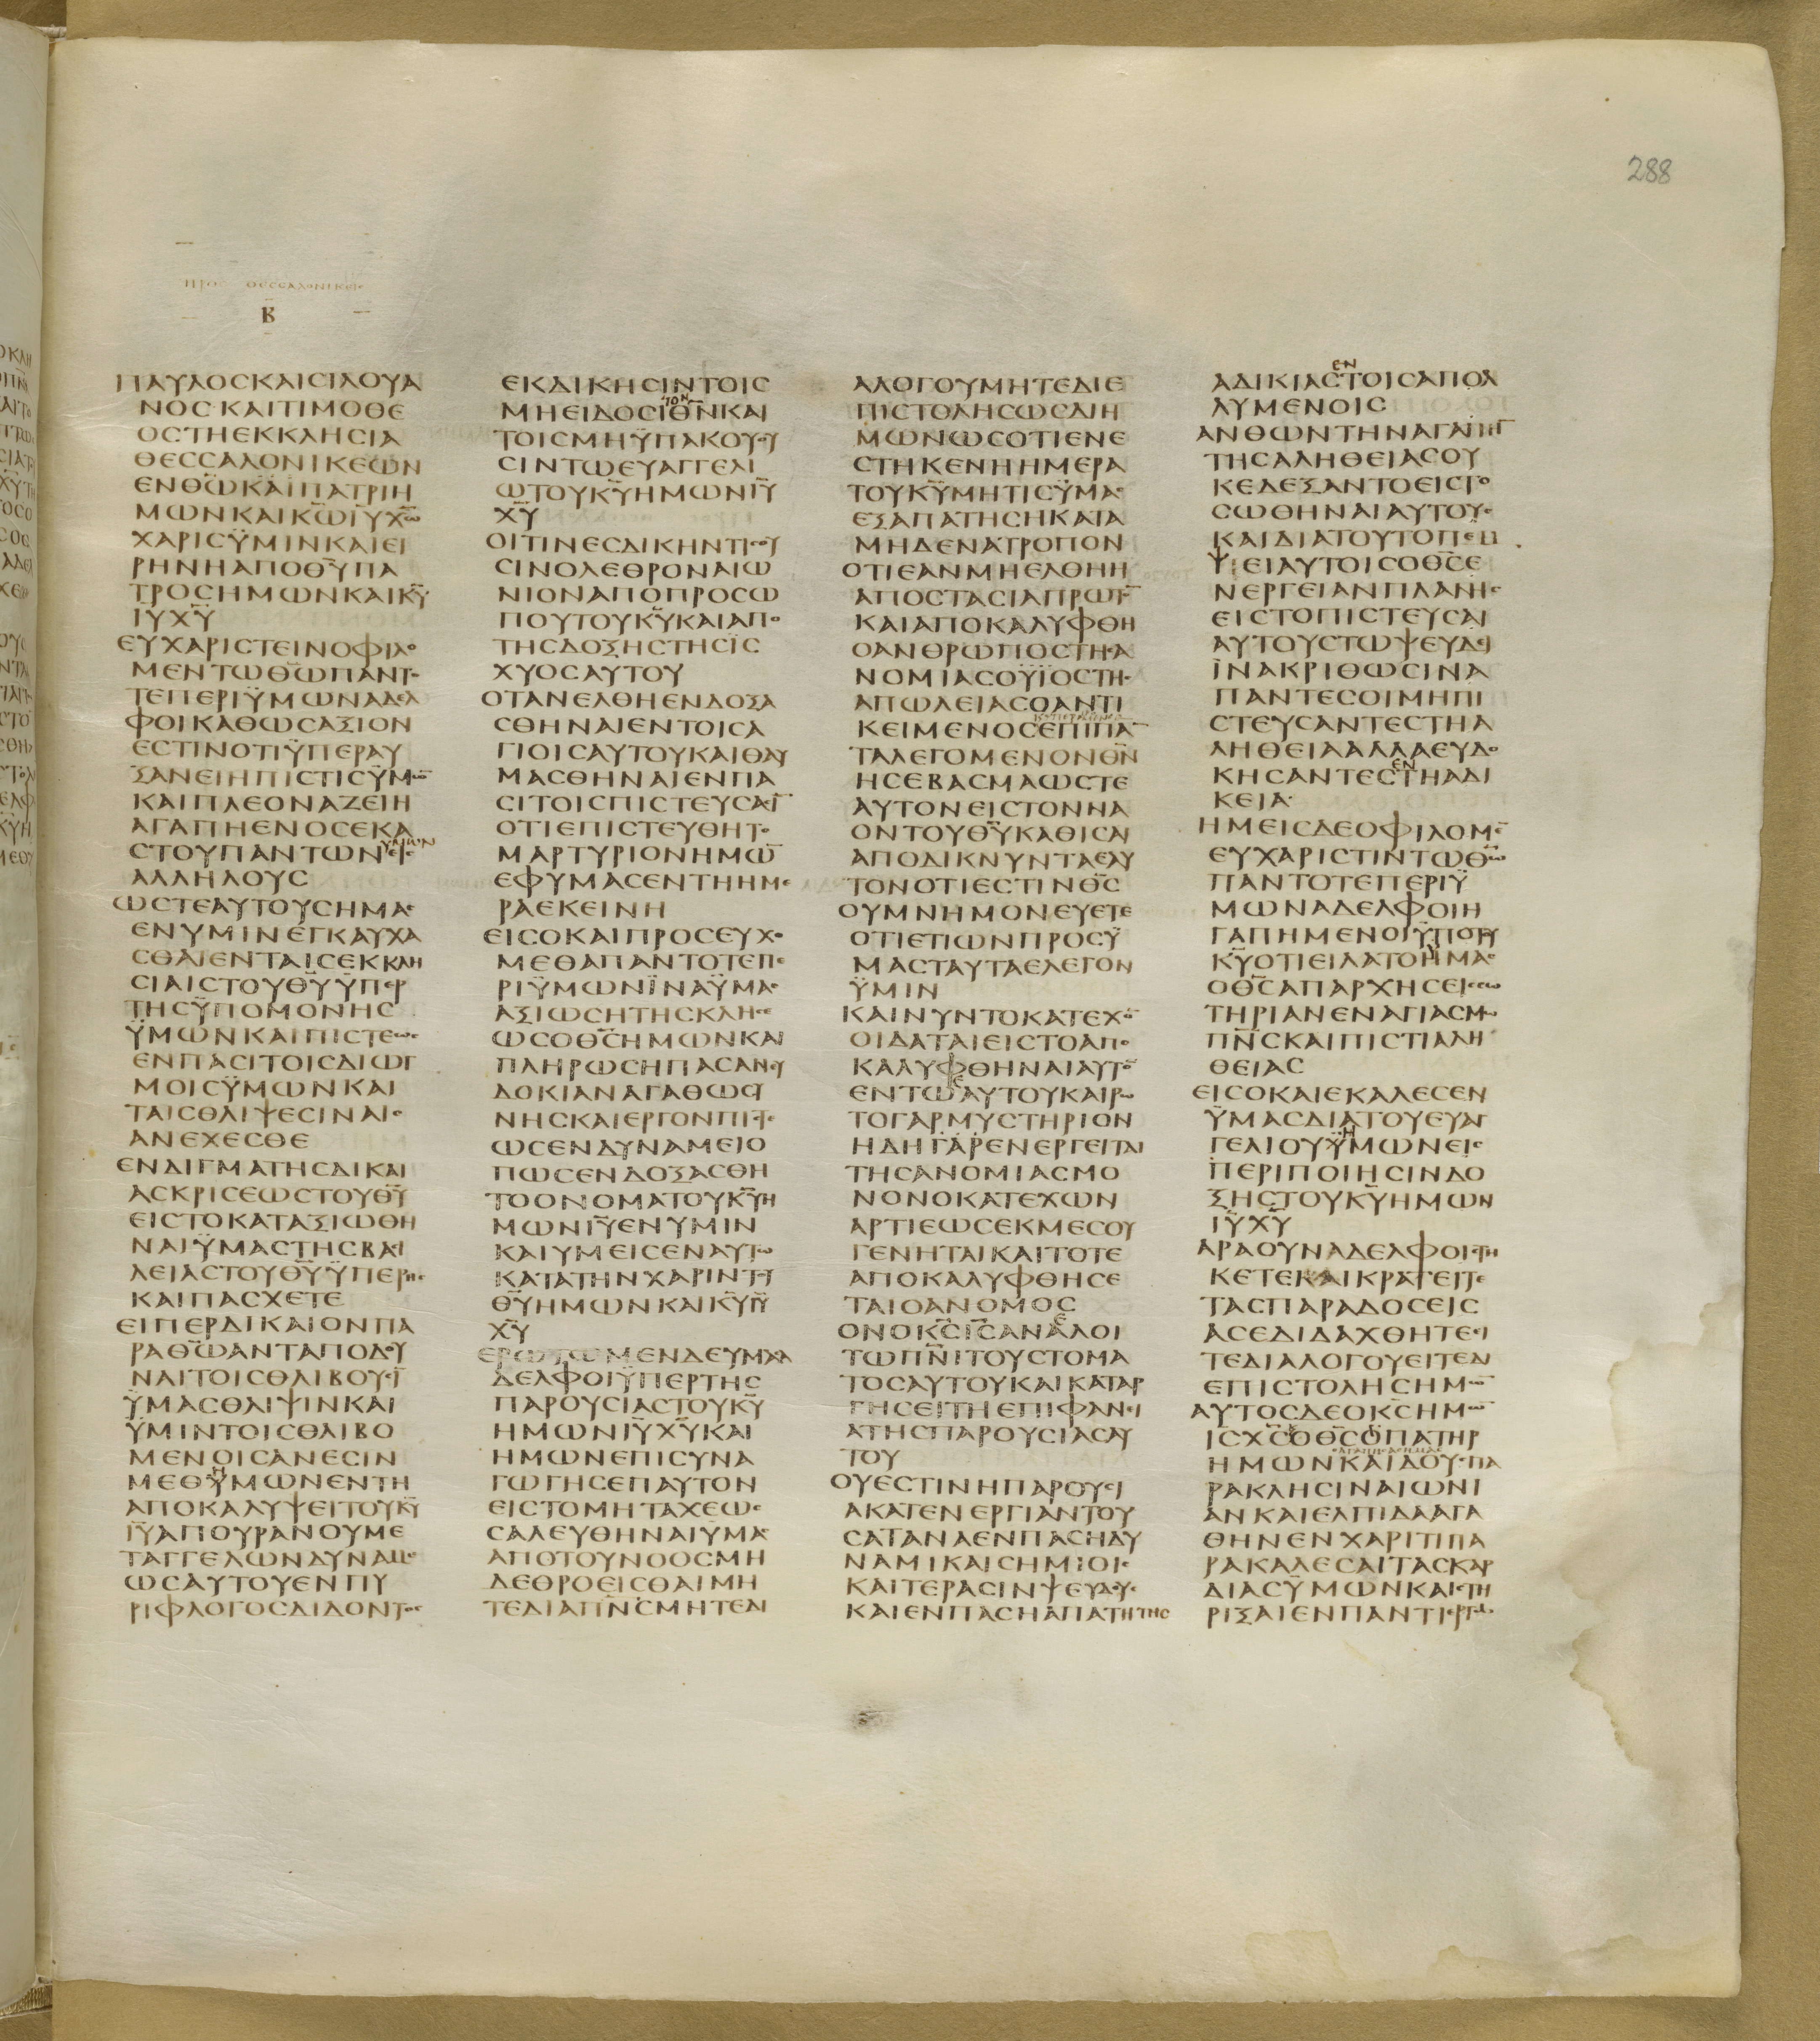 288
ΠΡΟΣ ΘΕΣΣΑΛΟΝΙΚΕΙΣ
Β
ΠΑΥΛΟϹΚΑΙϹΙΛΟΥΑ
ΝΟϹ·ΚΑΙΤΙΜΟΘΕ
ΟϹΤΗΕΚΚΛΗϹΙΑ
ΘΕϹϹΑΛΟΝΙΚΕΩΝ
ΕΝΘ̅Ω̅ΚΑΙΠΑΤΡΙΗ
ΜΩΝΚΑΙΚ̅Ω̅Ι̅Υ̅Χ̅Ω̅
ΧΑΡΙϹΫΜΙΝΚΑΙΕΙ
ΡΗΝΗΑΠΟΘ̅Υ̅ΠΑ
ΤΡΟϹΗΜΩΝΚΑΙΚ̅Υ̅
Ι̅Υ̅Χ̅Υ̅
ΕΥΧΑΡΙϹΤΕΙΝΟΦΙΛΟ
ΜΕΝΤΩΘ̅Ω̅ΠΑΝΤΟ
ΤΕΠΕΡΙΫΜΩΝΑΔΕΛ
ΦΟΙΚΑΘΩϹΑΞΙΟΝ
ΕϹΤΙΝΟΤΙΫΠΕΡΑΥ
ΞΑΝΕΙΗΠΙϹΤΙϹΫΜΩ̅
ΚΑΙΠΛΕΟΝΑΖΕΙΗ
ΑΓΑΠΗΕΝΟϹΕΚΑ
ϹΤΟΥΠΑΝΤΩΝΥΜΩΝΕΙϹ
ΑΛΛΗΛΟΥϹ
ΩϹΤΕΑΥΤΟΥϹΗΜΑϹ
ΕΝΥΜΙΝΕΓΚΑΥΧΑ
ϹΘΑΙΕΝΤΑΙϹΕΚΚΛΗ
ϹΙΑΙϹΤΟΥΘ̅Υ̅ΫΠΕΡ
ΤΗϹΫΠΟΜΟΝΗϹ
ΫΜΩΝΚΑΙΠΙϹΤΕΩϹ
ΕΝΠΑϹΙΤΟΙϹΔΙΩΓ
ΜΟΙϹΫΜΩΝΚΑΙ
ΤΑΙϹΘΛΙΨΕϹΙΝΑΙϹ
ΑΝΕΧΕϹΘΕ
ΕΝΔΙΓΜΑΤΗϹΔΙΚΑΙ
ΑϹΚΡΙϹΕΩϹΤΟΥΘ̅Υ̅
ΕΙϹΤΟΚΑΤΑΞΙΩΘΗ
ΝΑΙΫΜΑϹΤΗϹΒΑϹΙ
ΛΕΙΑϹΤΟΥΘ̅Υ̅ΫΠΕΡΗϹ
ΚΑΙΠΑϹΧΕΤΕ
ΕΙΠΕΡΔΙΚΑΙΟΝΠΑ
ΡΑΘ̅Ω̅ΑΝΤΑΠΟΔΟΥ
ΝΑΙΤΟΙϹΘΛΙΒΟΥϹΙ̅
ΫΜΑϹΘΛΙΨΙΝΚΑΙ
ΫΜΙΝΤΟΙϹΘΛΙΒΟ
ΜΕΝΟΙϹΑΝΕϹΙΝ
ΜΕΘΗΜΩΝΕΝΤΗ
ΑΠΟΚΑΛΥΨΕΙΤΟΥΚ̅Υ̅
Ι̅Υ̅ΑΠΟΥΡΑΝΟΥΜΕ
ΤΑΓΓΕΛΩΝΔΥΝΑΜΕ
ΩϹΑΥΤΟΥΕΝΠΥ
ΡΙΦΛΟΓΟϹΔΙΔΟΝΤΟϹ
ΕΚΔΙΚΗϹΙΝΤΟΙϹ
ΜΗΕΙΔΟϹΙΤΟΝΘ̅Ν̅ΚΑΙ
ΤΟΙϹΜΗΫΠΑΚΟΥΟΥ
ϹΙΝΤΩΕΥΑΓΓΕΛΙ
ΩΤΟΥΚ̅Υ̅ΗΜΩΝΙ̅Υ̅
Χ̅Υ̅
ΟΙΤΙΝΕϹΔΙΚΗΝΤΙϹΟΥ
ϹΙΝΟΛΕΘΡΟΝΑΙΩ
ΝΙΟΝΑΠΟΠΡΟϹΩ
ΠΟΥΤΟΥΚ̅Υ̅ΚΑΙΑΠΟ
ΤΗϹΔΟΞΗϹΤΗϹΪϹ
ΧΥΟϹΑΥΤΟΥ
ΟΤΑΝΕΛΘΗΕΝΔΟΞΑ
ϹΘΗΝΑΙΕΝΤΟΙϹΑ
ΓΙΟΙϹΑΥΤΟΥΚΑΙΘΑΥ
ΜΑϹΘΗΝΑΙΕΝΠΑ
ϹΙΤΟΙϹΠΙϹΤΕΥϹΑϹΙ̅
ΟΤΙΕΠΙϹΤΕΥΘΗΤΟ
ΜΑΡΤΥΡΙΟΝΗΜΩ̅
ΕΦΥΜΑϹΕΝΤΗΗΜΕ
ΡΑΕΚΕΙΝΗ
ΕΙϹΟΚΑΙΠΡΟϹΕΥΧΟ
ΜΕΘΑΠΑΝΤΟΤΕΠΕ
ΡΙΫΜΩΝΪΝΑΫΜΑϹ
ΑΞΙΩϹΗΤΗϹΚΛΗϹΕ
ΩϹΟΘ̅Ϲ̅ΗΜΩΝΚΑΙ
ΠΛΗΡΩϹΗΠΑϹΑΝΕΥ
ΔΟΚΙΑΝΑΓΑΘΩϹΥ
ΝΗϹΚΑΙΕΡΓΟΝΠΙϹΤΕ
ΩϹΕΝΔΥΝΑΜΕΙΟ
ΠΩϹΕΝΔΟΞΑϹΘΗ
ΤΟΟΝΟΜΑΤΟΥΚ̅Υ̅Η
ΜΩΝΙ̅Υ̅ΕΝΥΜΙΝ
ΚΑΙΥΜΕΙϹΕΝΑΥΤΩ
ΚΑΤΑΤΗΝΧΑΡΙΝΤΟΥ
Θ̅Υ̅ΗΜΩΝΚΑΙΚ̅Υ̅Ι̅Υ̅
Χ̅Υ̅
ΕΡΩΤΩΜΕΝΔΕΥΜΑϹΑ
ΔΕΛΦΟΙΫΠΕΡΤΗϹ
ΠΑΡΟΥϹΙΑϹΤΟΥΚ̅Υ̅
ΗΜΩΝΙ̅Υ̅Χ̅Υ̅ΚΑΙ
ΗΜΩΝΕΠΙϹΥΝΑ
ΓΩΓΗϹΕΠΑΥΤΟΝ
ΕΙϹΤΟΜΗΤΑΧΕΩϹ
ϹΑΛΕΥΘΗΝΑΙΥΜΑϹ
ΑΠΟΤΟΥΝΟΟϹΜΗ
ΔΕΘΡΟΕΙϹΘΑΙΜΗ
ΤΕΔΙΑΠ̅Ν̅Ϲ̅ΜΗΤΕΔΙ
ΑΛΟΓΟΥΜΗΤΕΔΙΕ
ΠΙϹΤΟΛΗϹΩϹΔΙΗ
ΜΩΝΩϹΟΤΙΕΝΕ
ϹΤΗΚΕΝΗΗΜΕΡΑ
ΤΟΥΚ̅Υ̅ΜΗΤΙϹΫΜΑϹ
ΕΞΑΠΑΤΗϹΗΚΑΤΑ
ΜΗΔΕΝΑΤΡΟΠΟΝ
ΟΤΙΕΑΝΜΗΕΛΘΗΗ
ΑΠΟϹΤΑϹΙΑΠΡΩΤΟ̅
ΚΑΙΑΠΟΚΑΛΥΦΘΗ
ΟΑΝΘΡΩΠΟϹΤΗϹΑ
ΝΟΜΙΑϹΟΫΪΟϹΤΗϹ
ΑΠΩΛΕΙΑϹΟΑΝΤΙ
ΚΕΙΜΕΝΟϹΕΠΙΠΑ̅
ΤΑΛΕΓΟΜΕΝΟΝΘ̅Ν̅
ΗϹΕΒΑϹΜΑΩϹΤΕ
ΑΥΤΟΝΕΙϹΤΟΝΝΑ
ΟΝΤΟΥΘ̅Υ̅ΚΑΘΙϹΑΙ
ΑΠΟΔΙΚΝΥΝΤΑΕΑΥ
ΤΟΝΟΤΙΕϹΤΙΝΘ̅Ϲ̅
ΟΥΜΝΗΜΟΝΕΥΕΤΕ
ΟΤΙΕΤΙΩΝΠΡΟϹΫ
ΜΑϹΤΑΥΤΑΕΛΕΓΟΝ
ΫΜΙΝ
ΚΑΙΝΥΝΤΟΚΑΤΕΧΟ̅
ΟΙΔΑΤΑΙΕΙϹΤΟΑΠΟ
ΚΑΛΥΦΘΗΝΑΙΑΥΤΟ̅
ΕΝΤΩΕΑΥΤΟΥΚΑΙΡΩ
ΤΟΓΑΡΜΥϹΤΗΡΙΟΝ
ΗΔΗΓΑΡΕΝΕΡΓΕΙΤΑΙ
ΤΗϹΑΝΟΜΙΑϹΜΟ
ΝΟΝΟΚΑΤΕΧΩΝ
ΑΡΤΙΕΩϹΕΚΜΕϹΟΥ
ΓΕΝΗΤΑΙΚΑΙΤΟΤΕ
ΑΠΟΚΑΛΥΦΘΗϹΕ
ΤΑΙΟΑΝΟΜΟϹ
ΟΝΟΚ̅Ϲ̅Ι̅Ϲ̅ΑΝΑΛΟΙ
ΤΩΠ̅Ν̅Ι̅ΤΟΥϹΤΟΜΑ
ΤΟϹΑΥΤΟΥΚΑΙΚΑΤΑΡ
ΓΗϹΕΙΤΗΕΠΙΦΑΝΕΙ
ΑΤΗϹΠΑΡΟΥϹΙΑϹΑΥ
ΤΟΥ
ΟΥΕϹΤΙΝΗΠΑΡΟΥϹΙ
ΑΚΑΤΕΝΕΡΓΙΑΝΤΟΥ
ϹΑΤΑΝΑΕΝΠΑϹΗΔΥ
ΝΑΜΙΚΑΙϹΗΜΙΟΙϹ
ΚΑΙΤΕΡΑϹΙΝΨΕΥΔΟΥϹ
ΚΑΙΕΝΠΑϹΗΑΠΑΤΗΤΗϹ
ΑΔΙΚΙΑϹΕΝΤΟΙϹΑΠΟΛ
ΛΥΜΕΝΟΙϹ
ΑΝΘΩΝΤΗΝΑΓΑΠΗ̅
ΤΗϹΑΛΗΘΕΙΑϹΟΥ
ΚΕΔΕΞΑΝΤΟΕΙϹΤΟ
ϹΩΘΗΝΑΙΑΥΤΟΥϹ
ΚΑΙΔΙΑΤΟΥΤΟΠΕΜ
ΨΕΙΑΥΤΟΙϹΟΘ̅Ϲ̅Ε
ΝΕΡΓΕΙΑΝΠΛΑΝΗϹ
ΕΙϹΤΟΠΙϹΤΕΥϹΑΙ
ΑΥΤΟΥϹΤΩΨΕΥΔΕΙ
ΪΝΑΚΡΙΘΩϹΙΝΑ
ΠΑΝΤΕϹΟΙΜΗΠΙ
ϹΤΕΥϹΑΝΤΕϹΤΗΑ
ΛΗΘΕΙΑΑΛΛΑΕΥΔΟ
ΚΗϹΑΝΤΕϹΕΝΤΗΑΔΙ
ΚΕΙΑ·
ΗΜΕΙϹΔΕΟΦΙΛΟΜΕ̅
ΕΥΧΑΡΙϹΤΙΝΤΩΘ̅Ω̅
ΠΑΝΤΟΤΕΠΕΡΙΫ
ΜΩΝΑΔΕΛΦΟΙΗ
ΓΑΠΗΜΕΝΟΙΫΠΟΤΟΥ
Κ̅Υ̅ΟΤΙΕΙΛΑΤΟΗΜΑϹ
ΟΘ̅Ϲ̅ΑΠΑΡΧΗϹΕΙϹϹΩ
ΤΗΡΙΑΝΕΝΑΓΙΑϹΜΩ
Π̅Ν̅Ϲ̅ΚΑΙΠΙϹΤΙΑΛΗ
ΘΕΙΑϹ
ΕΙϹΟΚΑΙΕΚΑΛΕϹΕΝ
ΫΜΑϹΔΙΑΤΟΥΕΥΑΓ
ΓΕΛΙΟΥΗΜΩΝΕΙϹ
ΠΕΡΙΠΟΙΗϹΙΝΔΟ
ΞΗϹΤΟΥΚ̅Υ̅ΗΜΩΝ
Ι̅Υ̅Χ̅Υ̅
ΑΡΑΟΥΝΑΔΕΛΦΟΙϹΤΗ
ΚΕΤΕΚΑΙΚΡΑΤΕΙΤΕ
ΤΑϹΠΑΡΑΔΟϹΕΙϹ
ΑϹΕΔΙΔΑΧΘΗΤΕΕΙ
ΤΕΔΙΑΛΟΓΟΥΕΙΤΕΔΙ
ΕΠΙϹΤΟΛΗϹΗΜΩ̅
ΑΥΤΟϹΔΕΟΚ̅Ϲ̅ΗΜΩ̅
Ι̅Ϲ̅Χ̅Ϲ̅ΟΘ̅Ϲ̅ΟΠΑΤΗΡ
ΗΜΩΝΚΑΙΔΟΥϹΠΑ
ΡΑΚΛΗϹΙΝΑΙΩΝΙ
ΑΝΚΑΙΕΛΠΙΔΑΑΓΑ
ΘΗΝΕΝΧΑΡΙΤΙΠΑ
ΡΑΚΑΛΕϹΑΙΤΑϹΚΑΡ
ΔΙΑϹΫΜΩΝΚΑΙϹΤΗ
ΡΙΞΑΙΕΝΠΑΝΤΙΕΡΓΩ